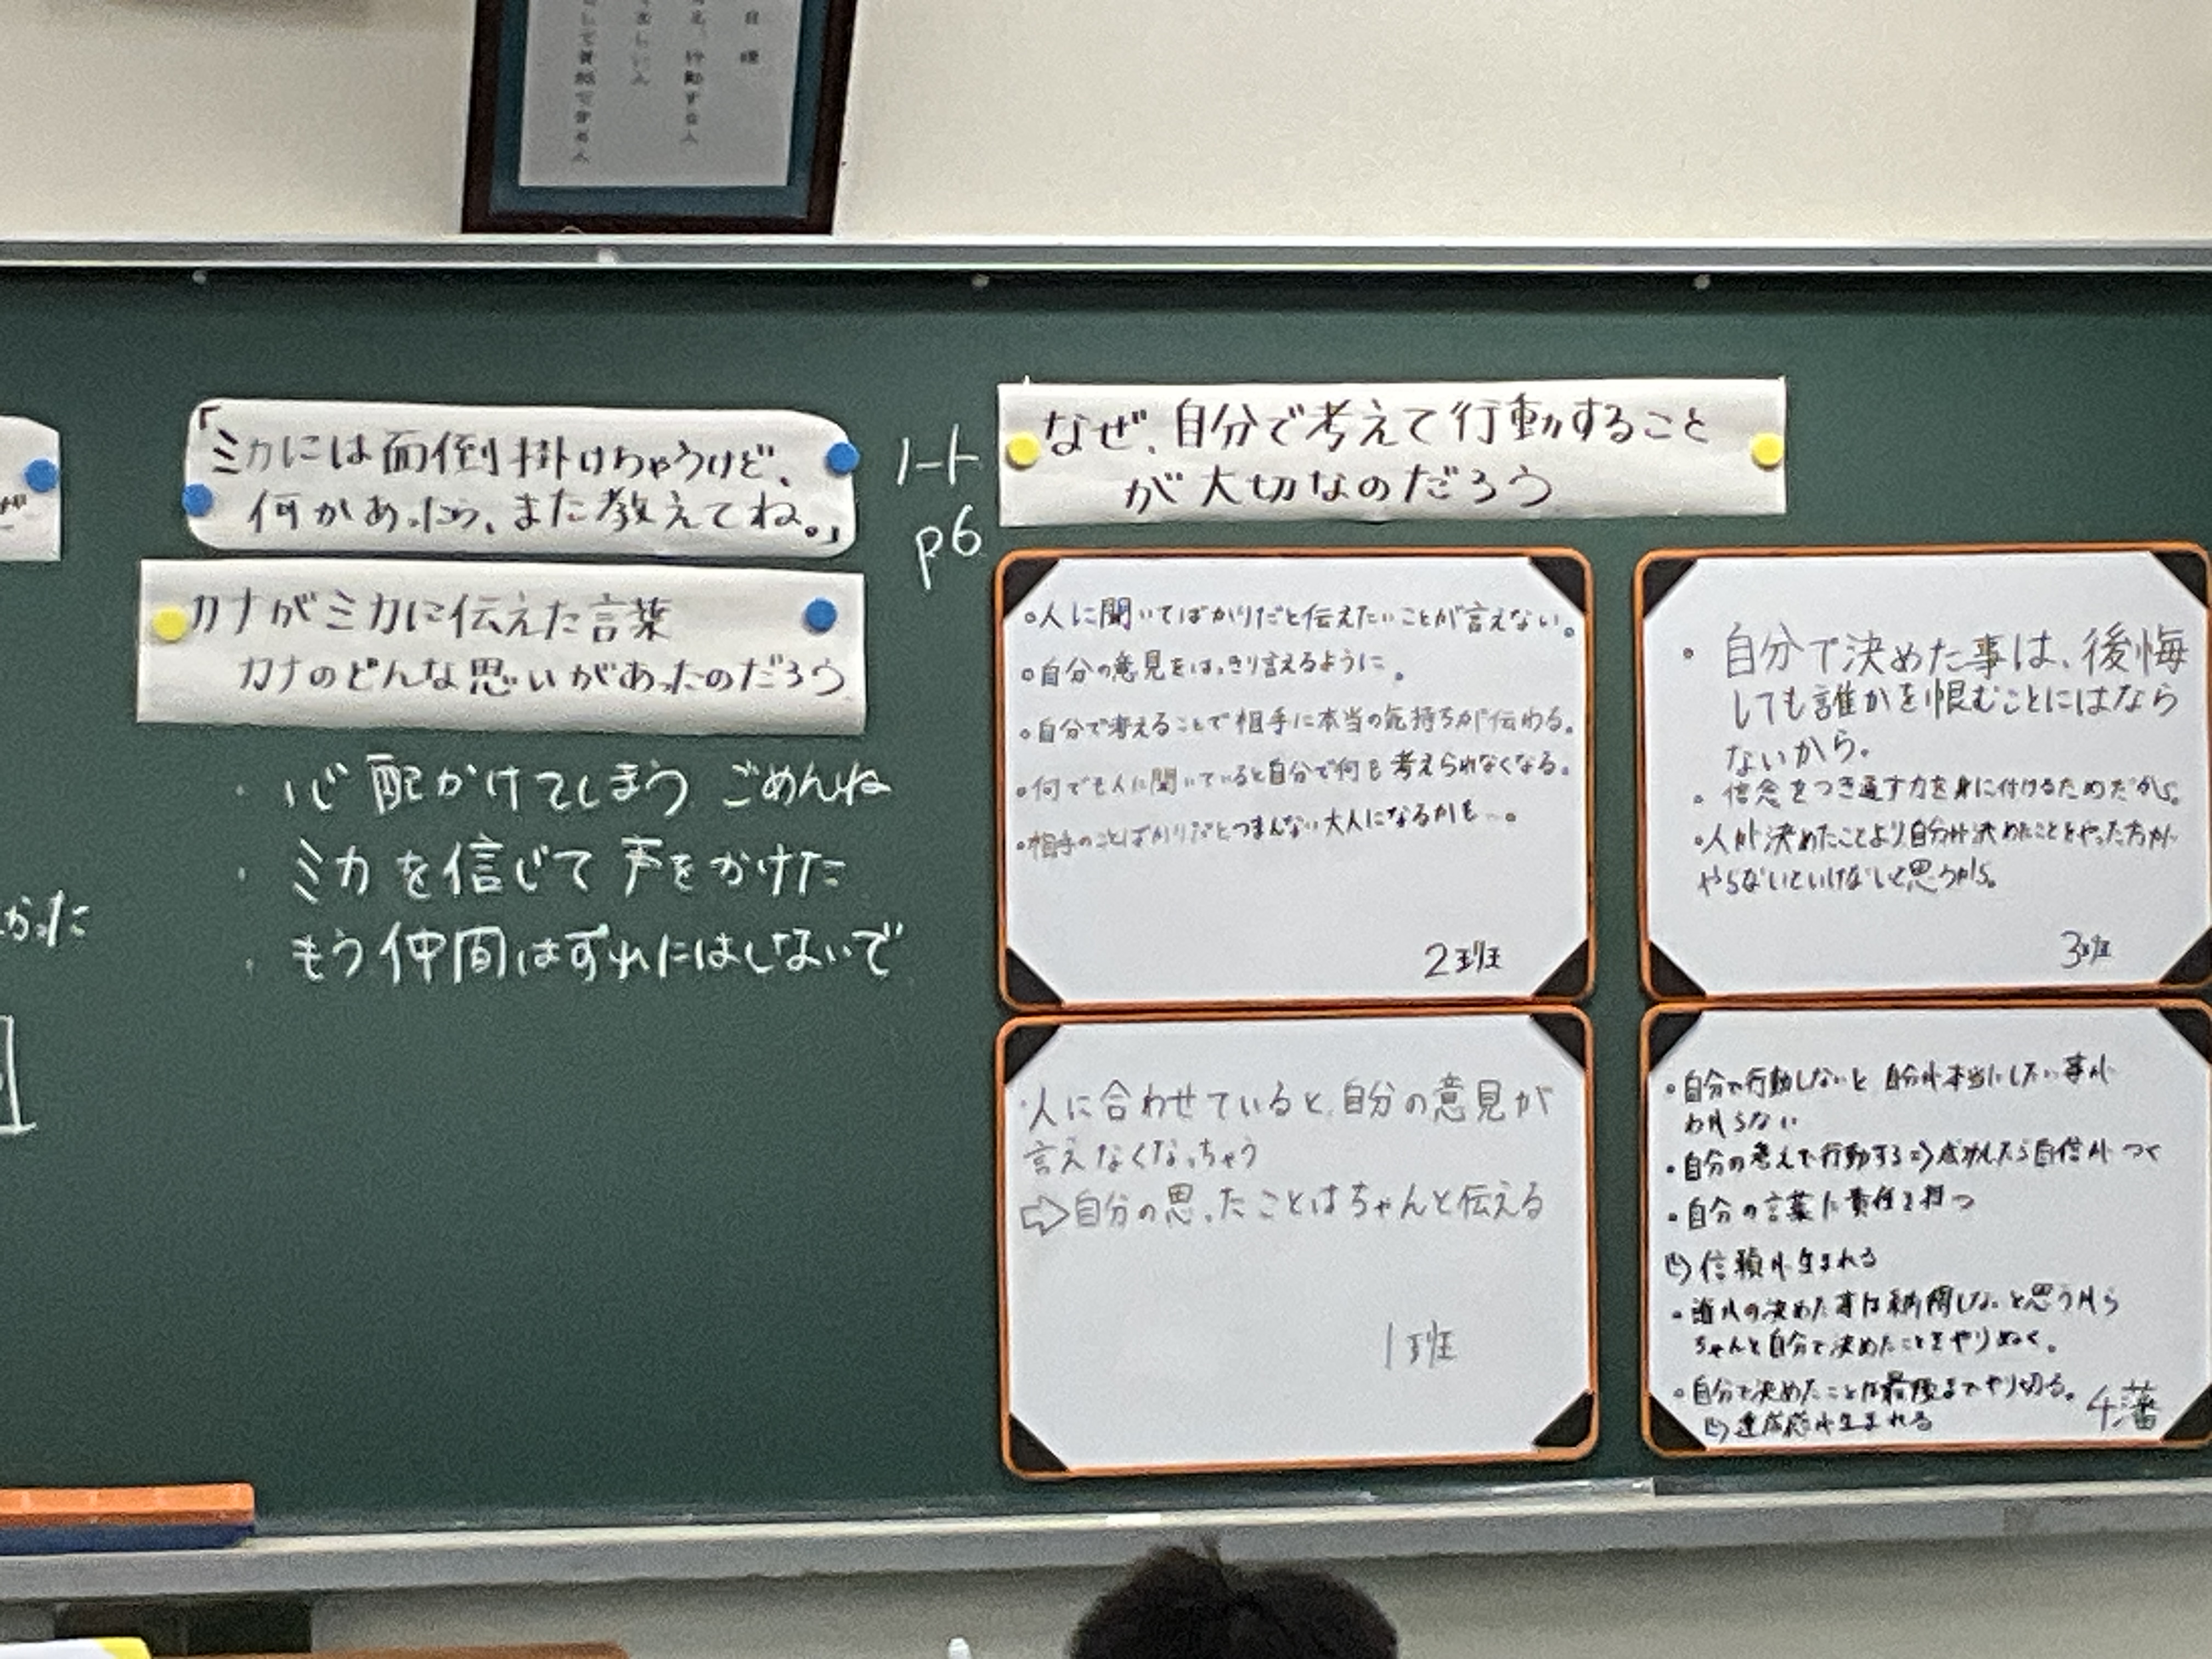 「ミカには面倒掛けちゃうけど、
何かあったら、また教えてね。」
カナがミカに伝えた言葉
カナのどんな思いがあったのだろう
・心配かけてしまう ごめんね
・ミカを信じて声をかけた
・もう仲間はずれにはしないで
かった
ノート
p6
なぜ、自分で考えて行動すること
が大切なのだろう
。人に聞いてばかりだと伝えたいことが言えない。
。自分の意見をはっきり言えるように。
。自分で考えることで相手に本当の気持ちが伝わる。
。何でも人に聞いていると自分で何も考えられなくなる。
。相手のことばかりだとつまんない大人になるかも…。
2班
・自分で決めた事は、後悔
しても誰かを恨むことにはなら
ないから。
。信念をつき通す力を身に付けるためだから。
・人が決めたことより自分が決めたことをやった方が
やらないといけないと思うから。
3班
・人に合わせていると、自分の意見が
言えなくなっちゃう
⇨自分の思ったことはちゃんと伝える
1班
・自分で行動しないと 自分が本当にしたい事が
わからない
・自分の考えで行動する⇒成功したら自信がつく
・自分の言葉に責任を持つ
信頼が生まれる
の決めた事は納得しないと思うから
ちゃんと自分で決めたことをやりぬく。
。自分で決めたことは最後までやり切る。
達成感が生まれる
4藩